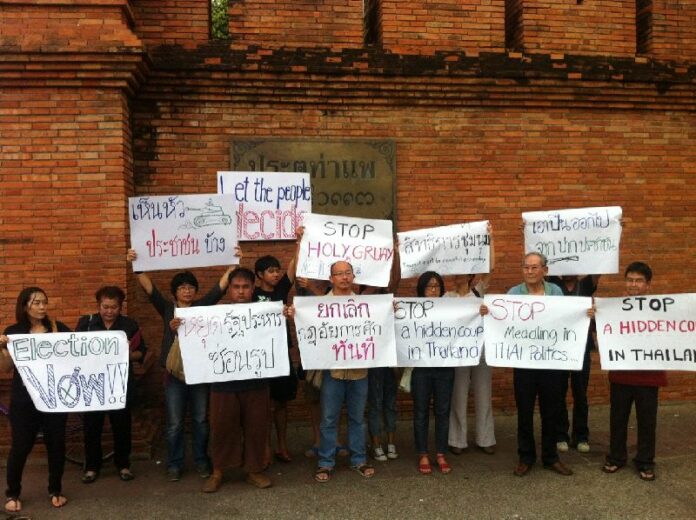 ประตูท่าแพ
Let the people
decide
เห็นหัว
ประชาชน บ้าง
STOP
สิทธิการชุมนุม
เอาปืนออกไป
จาก ปาก ประชาชน
Election
Now!!
หยุดรัฐประหาร
ซ่อนรูป
ยกเลิก
กฎอัยการศึก
ทันที
STOP
a hidden coup
in Thailand
STOP
Meddling in
THAI Politics...
STOP
A HIDDEN COU
IN THAILAN